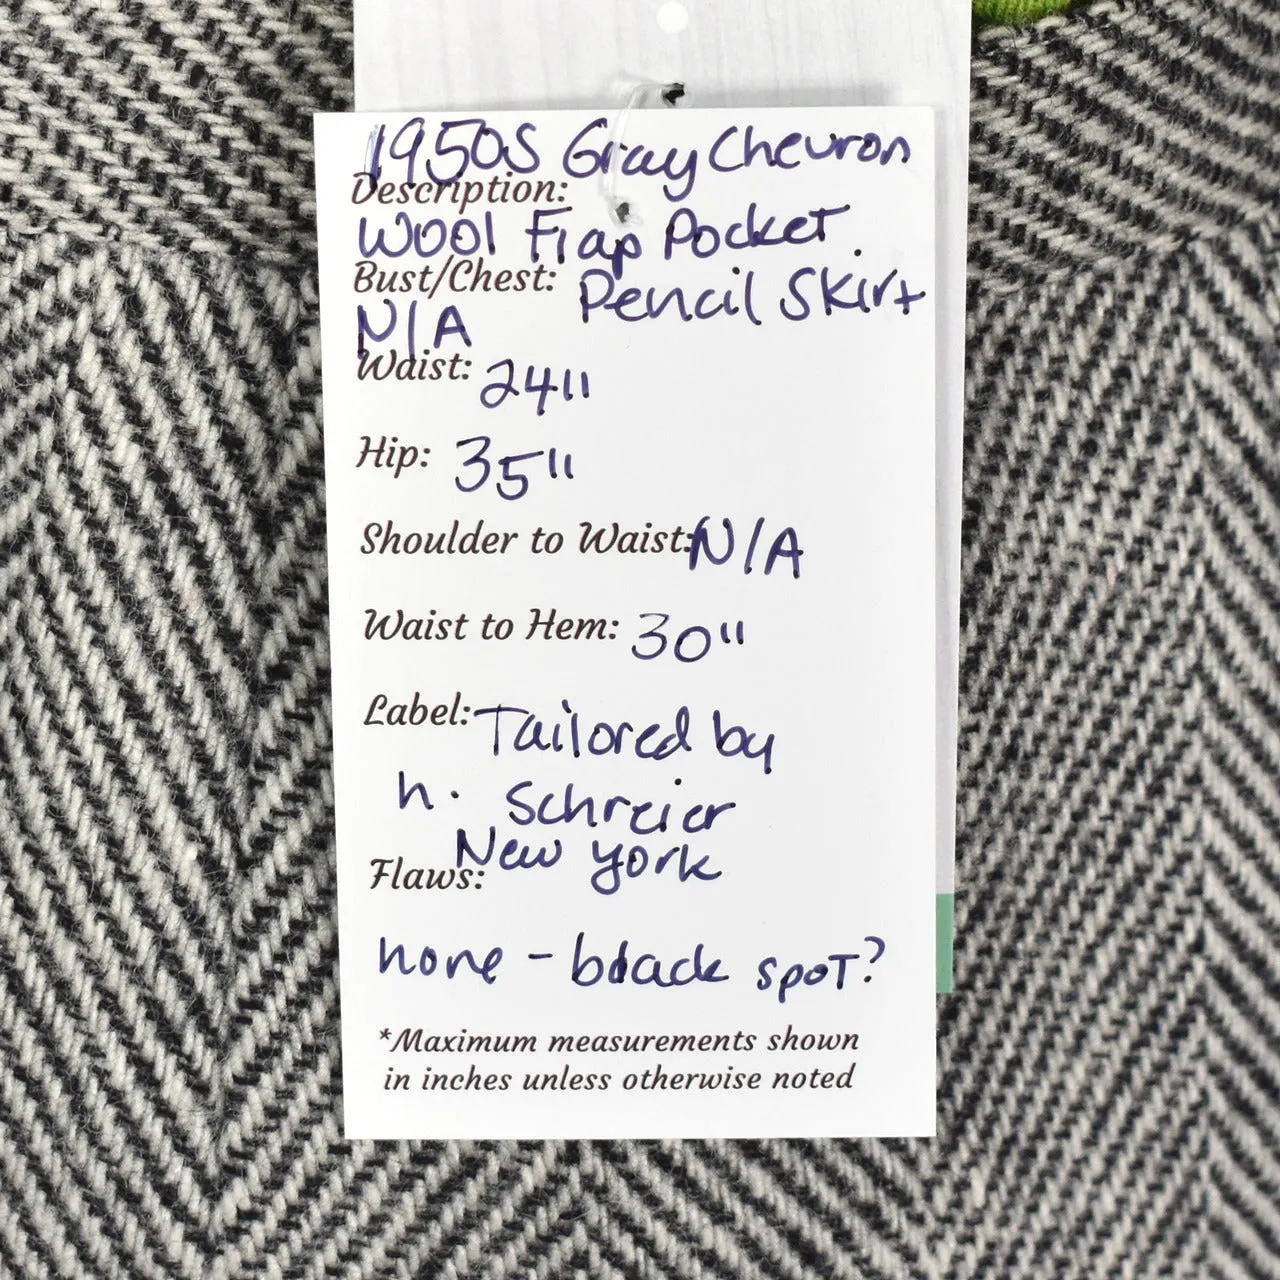 1950s Gray Chevron
Description:
Wool Flap Pocket
Bust/Chest: Pencil Skirt
N/A
Waist: 24"
Hip: 35"
Shoulder to Waist: N/A
Waist to Hem: 30"
Label: Tailored by
h. Schreier
New York
Flaws:
none - black spot?
*Maximum measurements shown
in inches unless otherwise noted